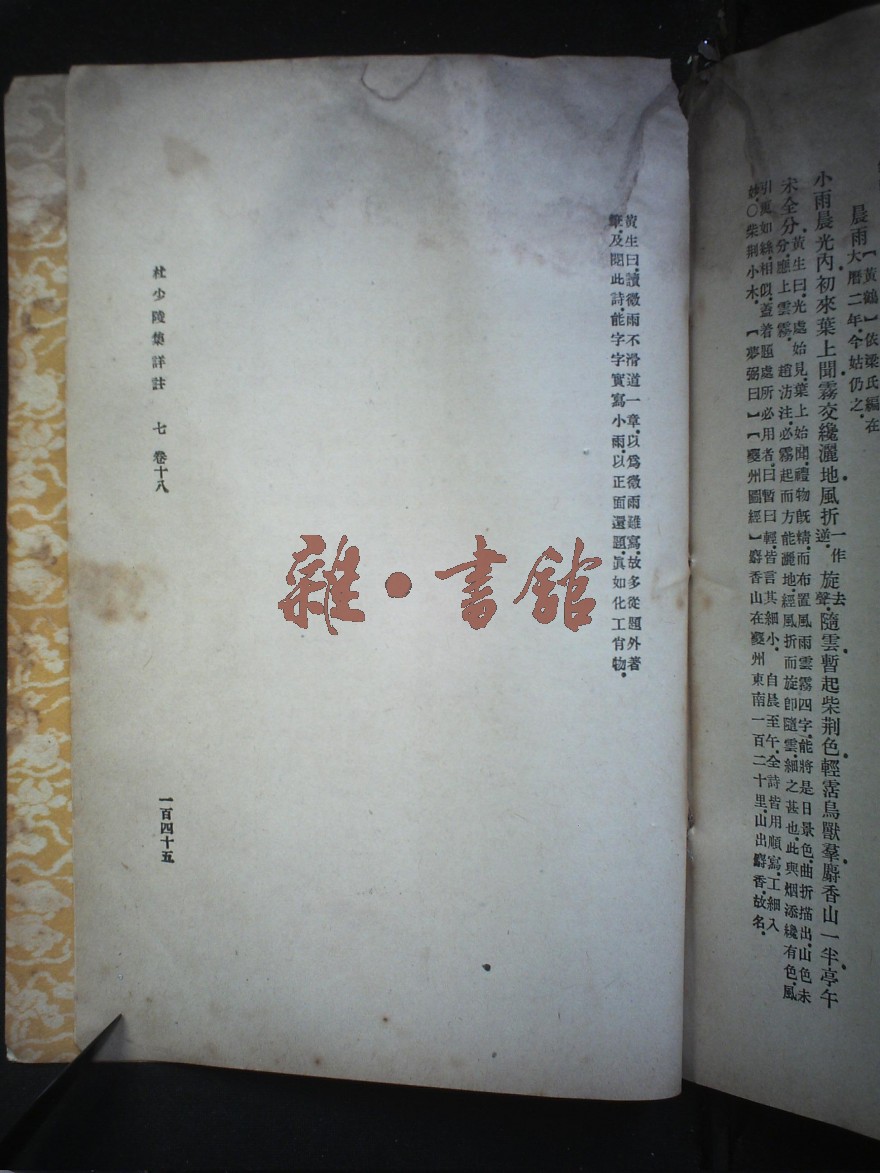 晨雨【黃鶴】依梁氏編在
大曆二年．今姑仍之．
小雨晨光內．初來葉上聞．霧交纔灑地．風折一作逆．旋去聲．隨雲．暫起柴荆色．輕霑鳥獸羣．麝香山一半．亭午
未全分．黃生曰．光處始見．葉上始聞．禮物旣精．而布置風雨雲霧四字．能將是日景色．曲折描出．山色未
分．應上雲霧．趙汸注．必霧起而方能灑地．經風折而旋卽隨雲．細之甚也．此與烟添纔有色．風
引更如絲．相似．蓋着題處所必用者．曰暫曰輕．皆言其細小．自晨至午．全詩皆用順寫．工細入
妙．〇柴荆小木．【夢弼曰】【夔州圖經】麝香山在夔州東南一百二十里．山出麝香．故名．
黃生曰．讀微雨不滑道一章．以爲微雨難寫．故多從題外著
筆．及閱此詩．能字字實寫小雨．以正面還題．眞如化工肖物．
杜少陵集詳註 七 卷十八
一百四十五
雜·書館